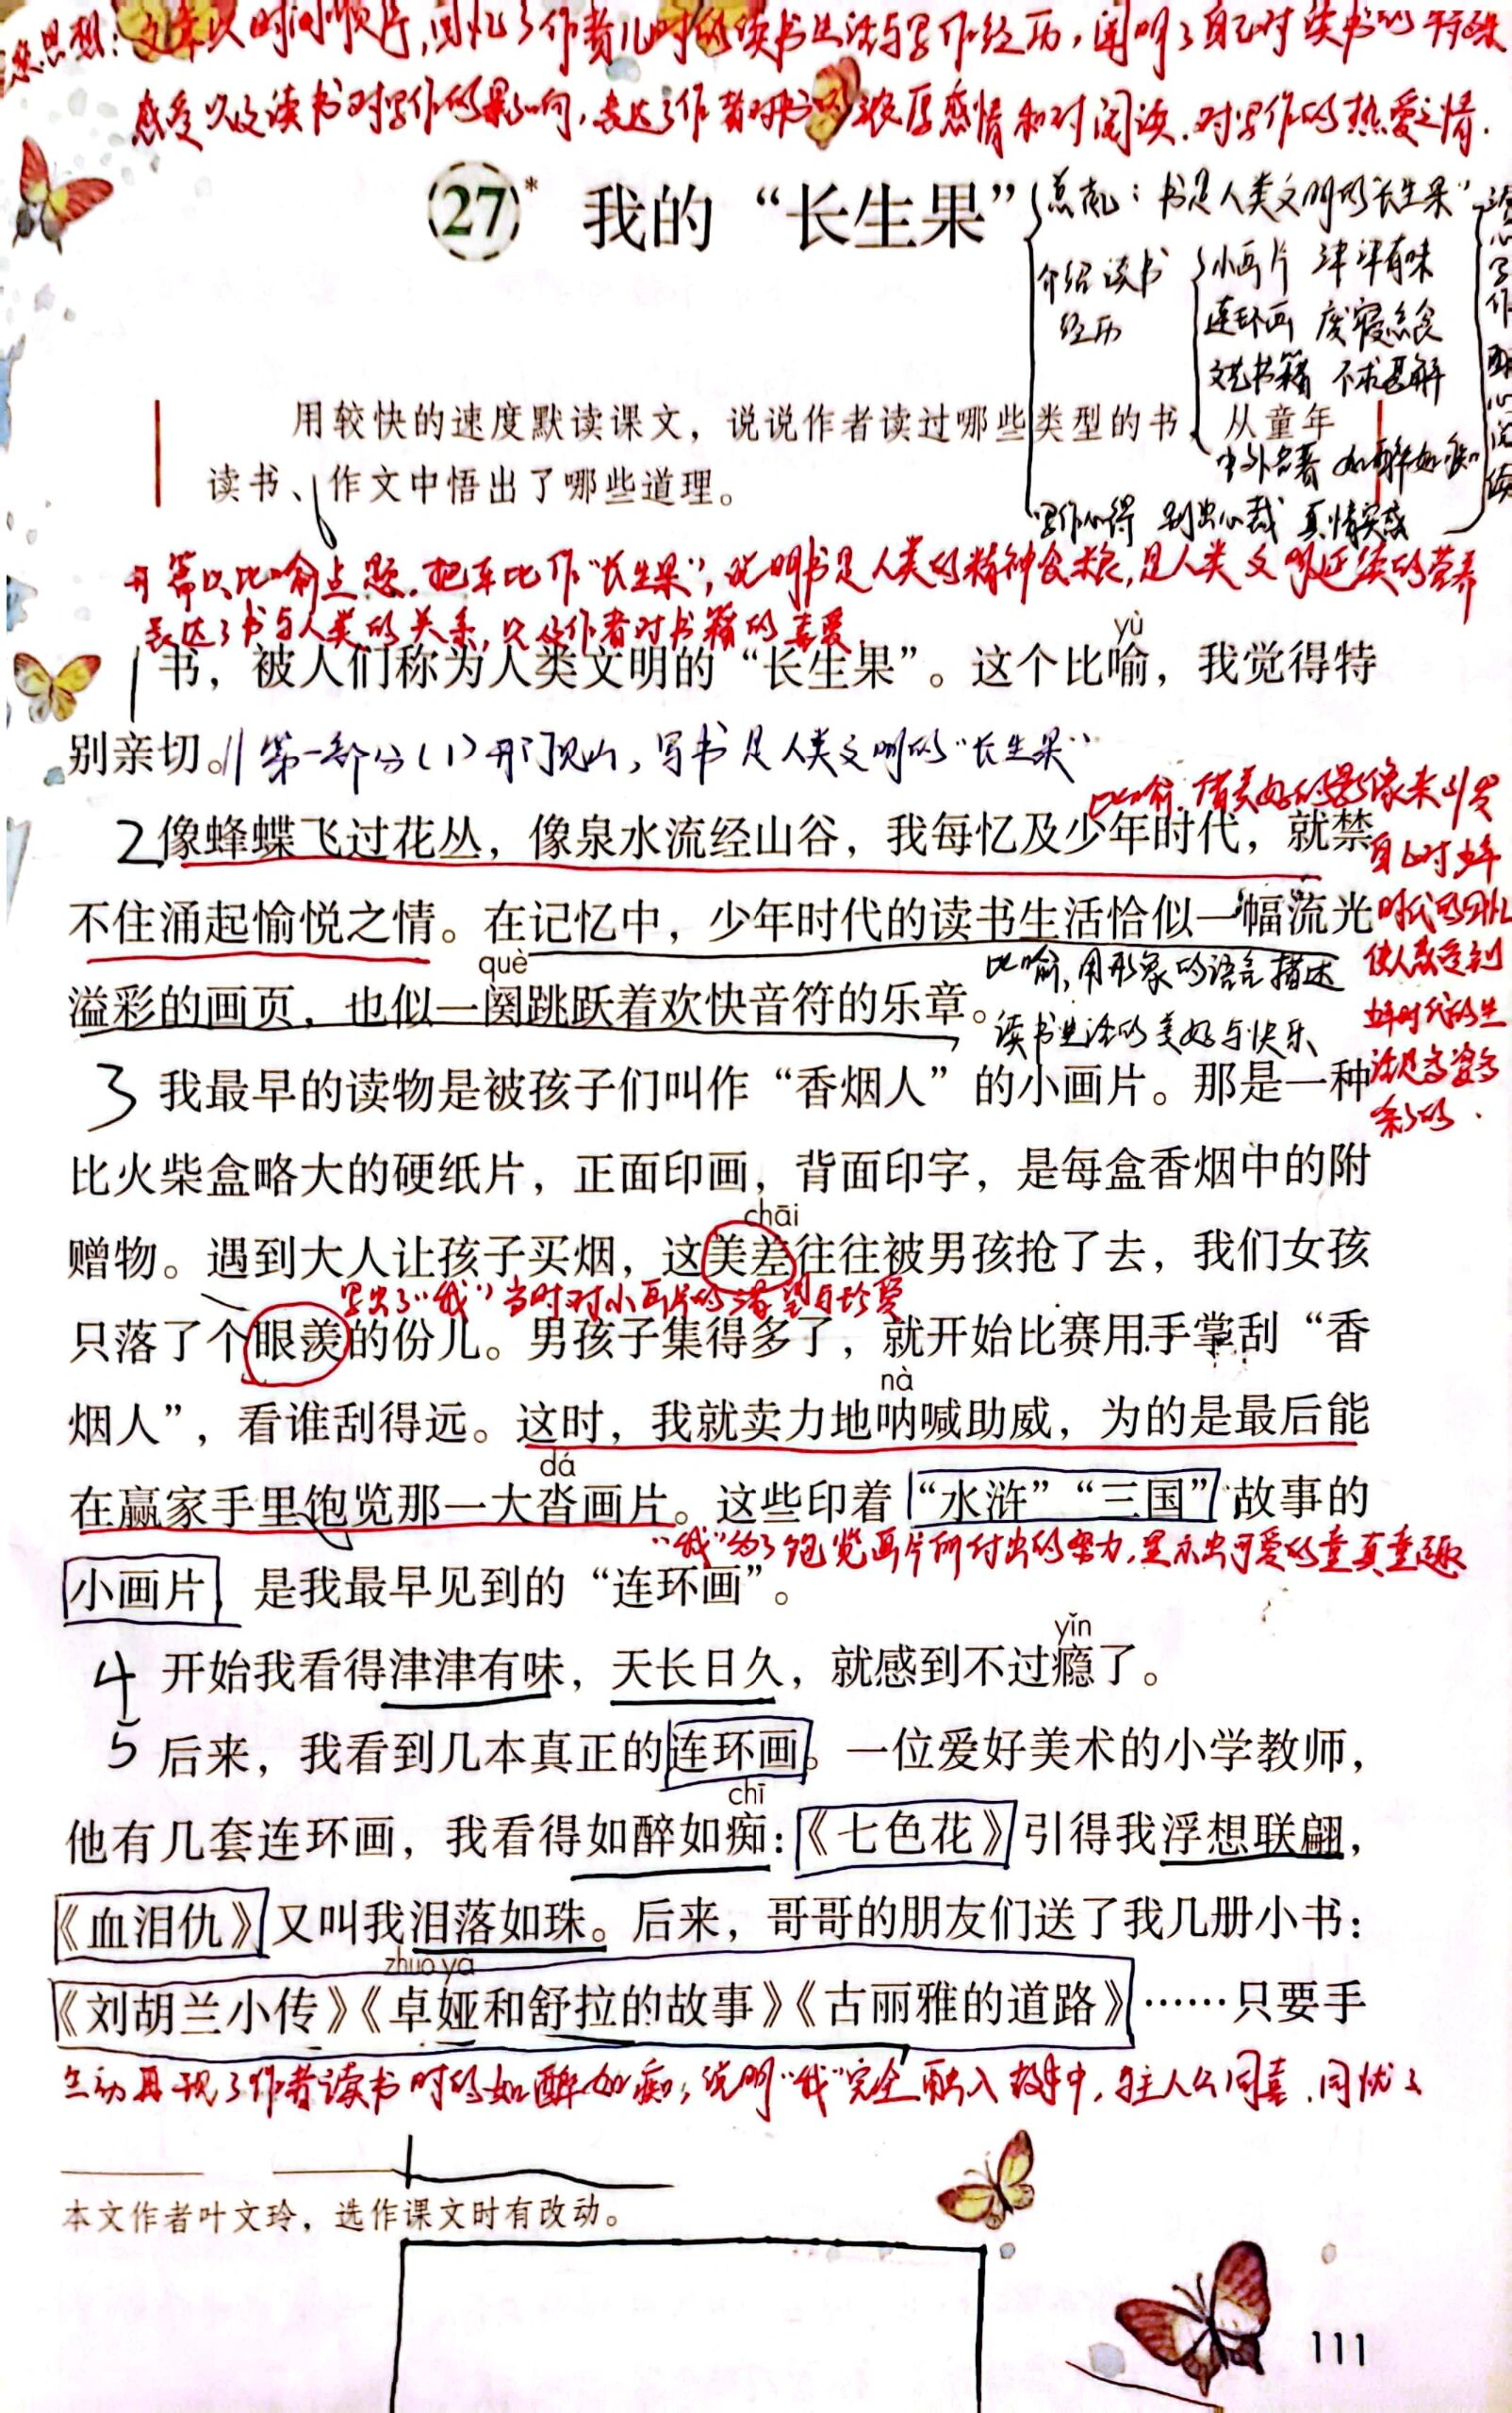 思想：文章以时间顺序，回忆了作者儿时的读书生活与写作经历，阐明了自己对读书的特殊
感受以及读书对写作的影响，表达了作者对书的浓厚感情和对阅读、对写作的热爱之情.
27* 我的“长生果”
总起：书是人类文明的“长生果”
介绍读书
经历
小画片 津津有味
连环画 废寝忘食
文艺书籍 不求甚解
中外名著 如醉如痴
写作心得 别出心裁 真情实感
用较快的速度默读课文，说说作者读过哪些类型的书，从童年
读书、作文中悟出了哪些道理。
开篇以比喻点题.把书比作“长生果”，说明书是人类的精神食粮,是人类文明延续的营养
表达了书与人类的关系，以及作者对书籍的喜爱.
yù
1 书，被人们称为人类文明的“长生果”。这个比喻，我觉得特
别亲切。// 第一部分(1)开门见山，写书是人类文明的“长生果”
比喻.借美好的影像来引发
自己对少年
时代的回忆
使人感受到
少年时代的生
活是多姿多
彩的.
2 像蜂蝶飞过花丛，像泉水流经山谷，我每忆及少年时代，就禁
不住涌起愉悦之情。在记忆中，少年时代的读书生活恰似一幅流光
què
溢彩的画页，也似一阕跳跃着欢快音符的乐章。
比喻,用形象的语言描述
读书生活的美好与快乐
3 我最早的读物是被孩子们叫作“香烟人”的小画片。那是一种
比火柴盒略大的硬纸片，正面印画，背面印字，是每盒香烟中的附
chāi
赠物。遇到大人让孩子买烟，这美差往往被男孩抢了去，我们女孩
写出了“我”当时对小画片的渴望与珍爱
只落了个眼羡的份儿。男孩子集得多了，就开始比赛用手掌刮“香
nà
烟人”，看谁刮得远。这时，我就卖力地呐喊助威，为的是最后能
dá
在赢家手里饱览那一大沓画片。这些印着“水浒”“三国”故事的
“我”为了饱览画片所付出的努力,显示出可爱的童真童趣
小画片，是我最早见到的“连环画”。
yǐn
4 开始我看得津津有味，天长日久，就感到不过瘾了。
5 后来，我看到几本真正的连环画。一位爱好美术的小学教师，
chī
他有几套连环画，我看得如醉如痴：《七色花》引得我浮想联翩，
《血泪仇》又叫我泪落如珠。后来，哥哥的朋友们送了我几册小书：
zhuó yà
《刘胡兰小传》《卓娅和舒拉的故事》《古丽雅的道路》……只要手
生动再现了作者读书时的如醉如痴，说明“我”完全融入故事中，与主人公同喜.同忧
本文作者叶文玲，选作课文时有改动。
111